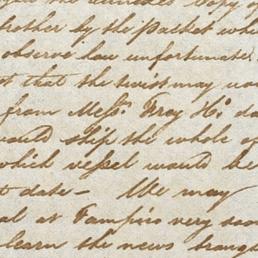 copy of
by the Packet
observe how unfortunate
that the twist may
from Messrs. Troy H: da
would ship the whole of
which vessel would be
to date — We may
al at Tampico very soo
learn the news brough